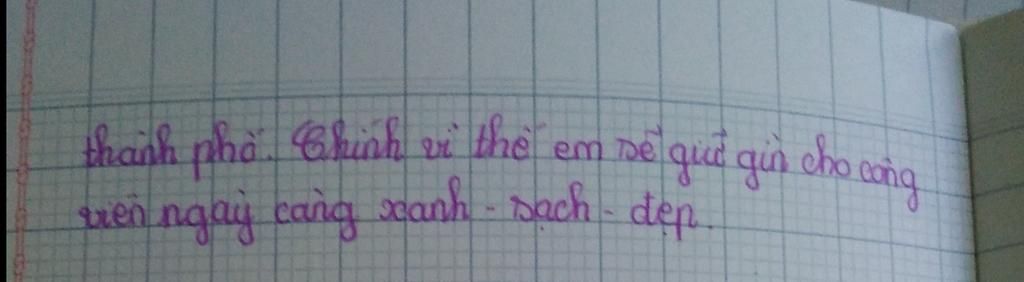 thành phố. Chính vì thế em sẽ giữ gìn cho công
viên ngày càng xanh - sạch - đẹp.